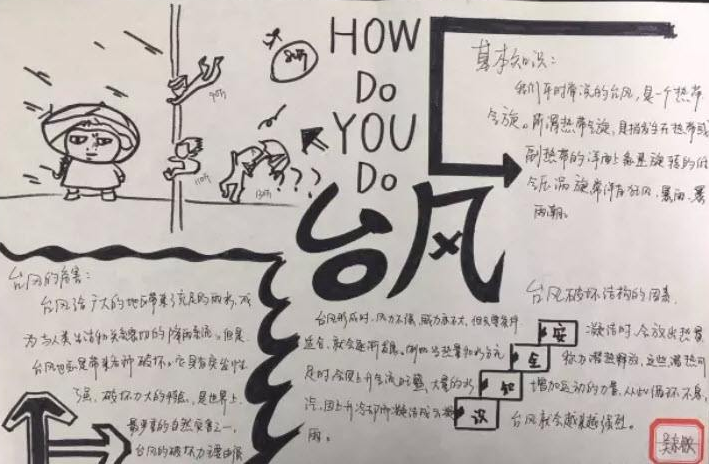 HOW
Do
YOU
Do
台风
80斤
90斤
110斤
130斤
???
基本知识：
我们平时常说的台风，是一个热带
气旋。所谓热带气旋，是指发生在热带或
副热带的洋面上急速旋转的低
气压涡旋常伴有狂风、暴雨、暴
雨潮。
台风的危害：
台风给广大的地区带来了充足的雨水，成
为与人类生活和关系密切的降雨系统。但是
台风也总是带来各种破坏，它具有突发性
强、破坏力大的特点，是世界上
最严重的自然灾害之一。
台风的破坏力主要由强
台风破坏结构的因素
台风形成时，风力不强，威力亦不大，但只要条件
适合，就会逐渐发展。例如当热量和水分充
足时，令上升气流旺盛，大量的水
汽，因上升冷却而凝结成云
雨。
安
全
知
识
凝结时，令放出热量
称为潜热释放，这些潜热可
增加运动的力量，从此循环不息，
台风就会越来越强烈。